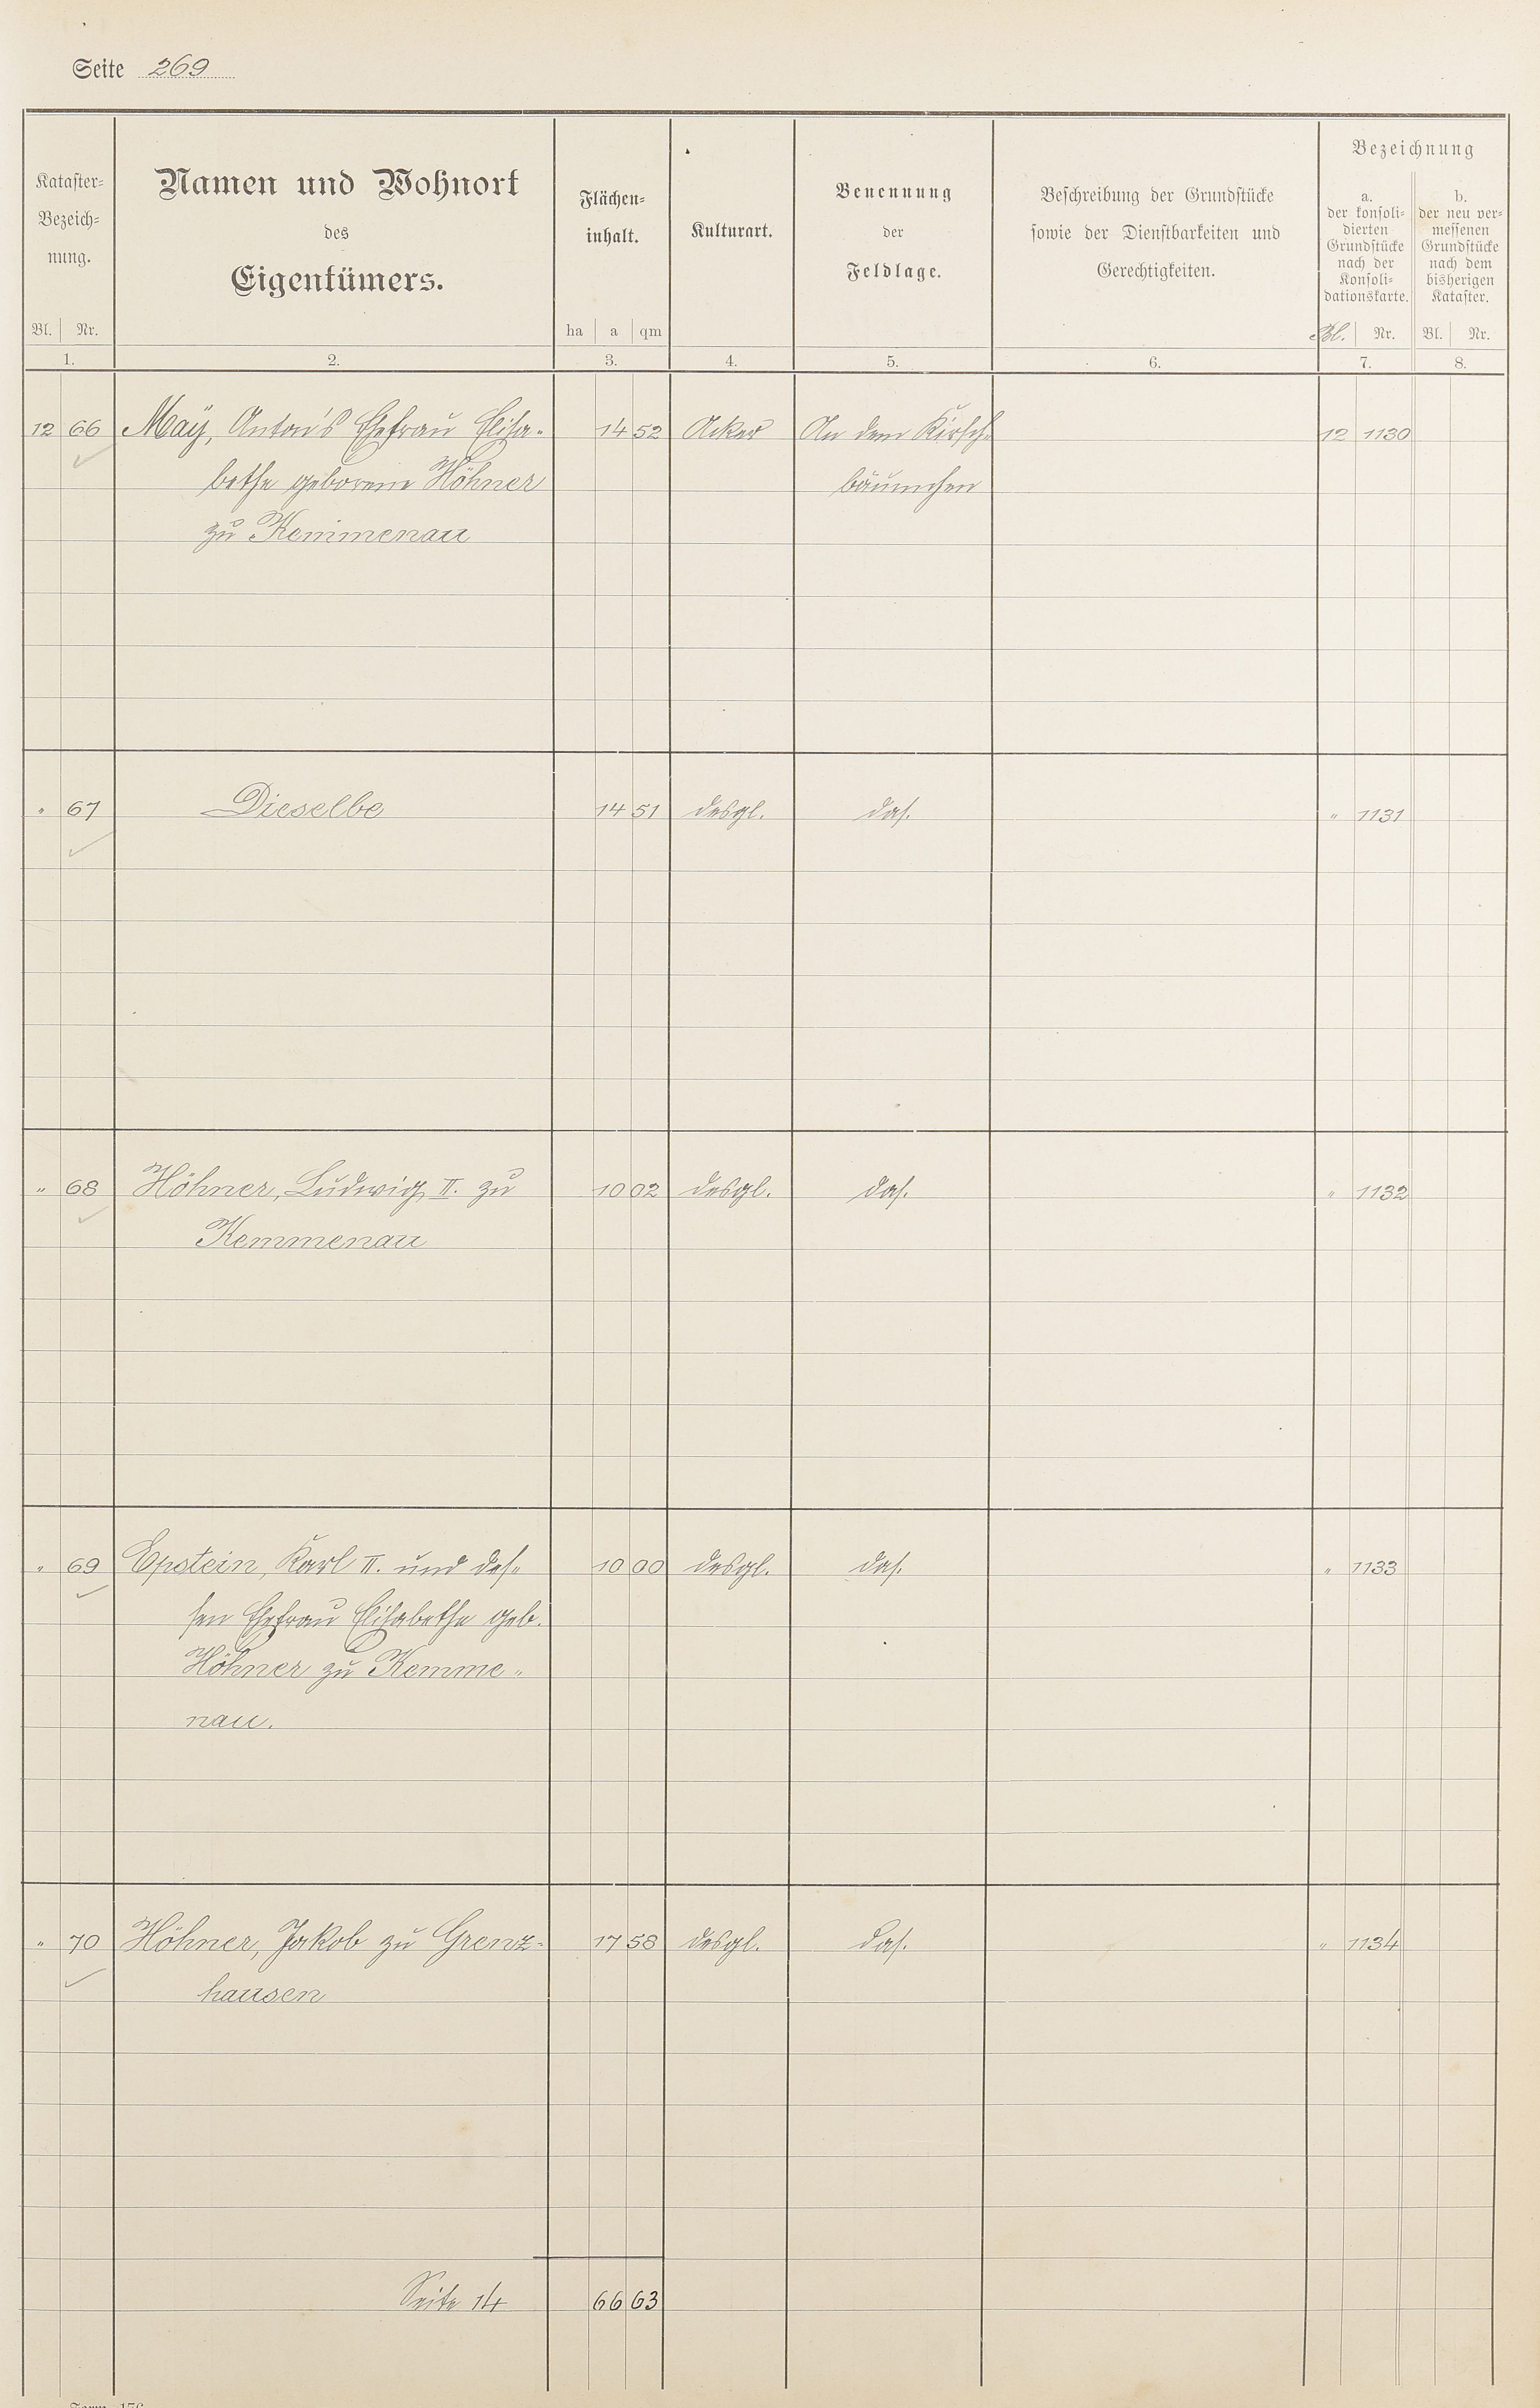 Seite 269
Kataster=
Bezeich=
nung.
Bl. Nr.
1.
Namen und Wohnort
des
Eigentümers.
2.
Flächen=
inhalt.
ha a qm
3.
Kulturart.
4.
Benennung
der
Feldlage.
5.
Beschreibung der Grundstücke
sowie der Dienstbarkeiten und
Gerechtigkeiten.
6.
Bezeichnung
a.
der konsoli=
dierten
Grundstücke
nach der
Konsoli=
dationskarte.
Bl. Nr.
7.
b.
der neu ver=
messenen
Grundstücke
nach dem
bisherigen
Kataster.
Bl. Nr.
8.
12 66 Maÿ, Anton's Ehefrau Elisa- 14 52 Acker An dem Kirsch- 12 1130
bethe geborene Höhner bäumchen
zu Kemmenau
" 67 Dieselbe 14 51 desgl. das. " 1131
" 68 Höhner, Ludwig II. zu 10 02 desgl. das. " 1132
Kemmenau
" 69 Epstein, Karl II. und des- 10 00 desgl. das. " 1133
sen Ehefrau Elisabethe geb.
Höhner zu Kemme-
nau.
" 70 Höhner, Jakob zu Grenz- 17 58 desgl. das. " 1134
hausen
Seite 14 66 63